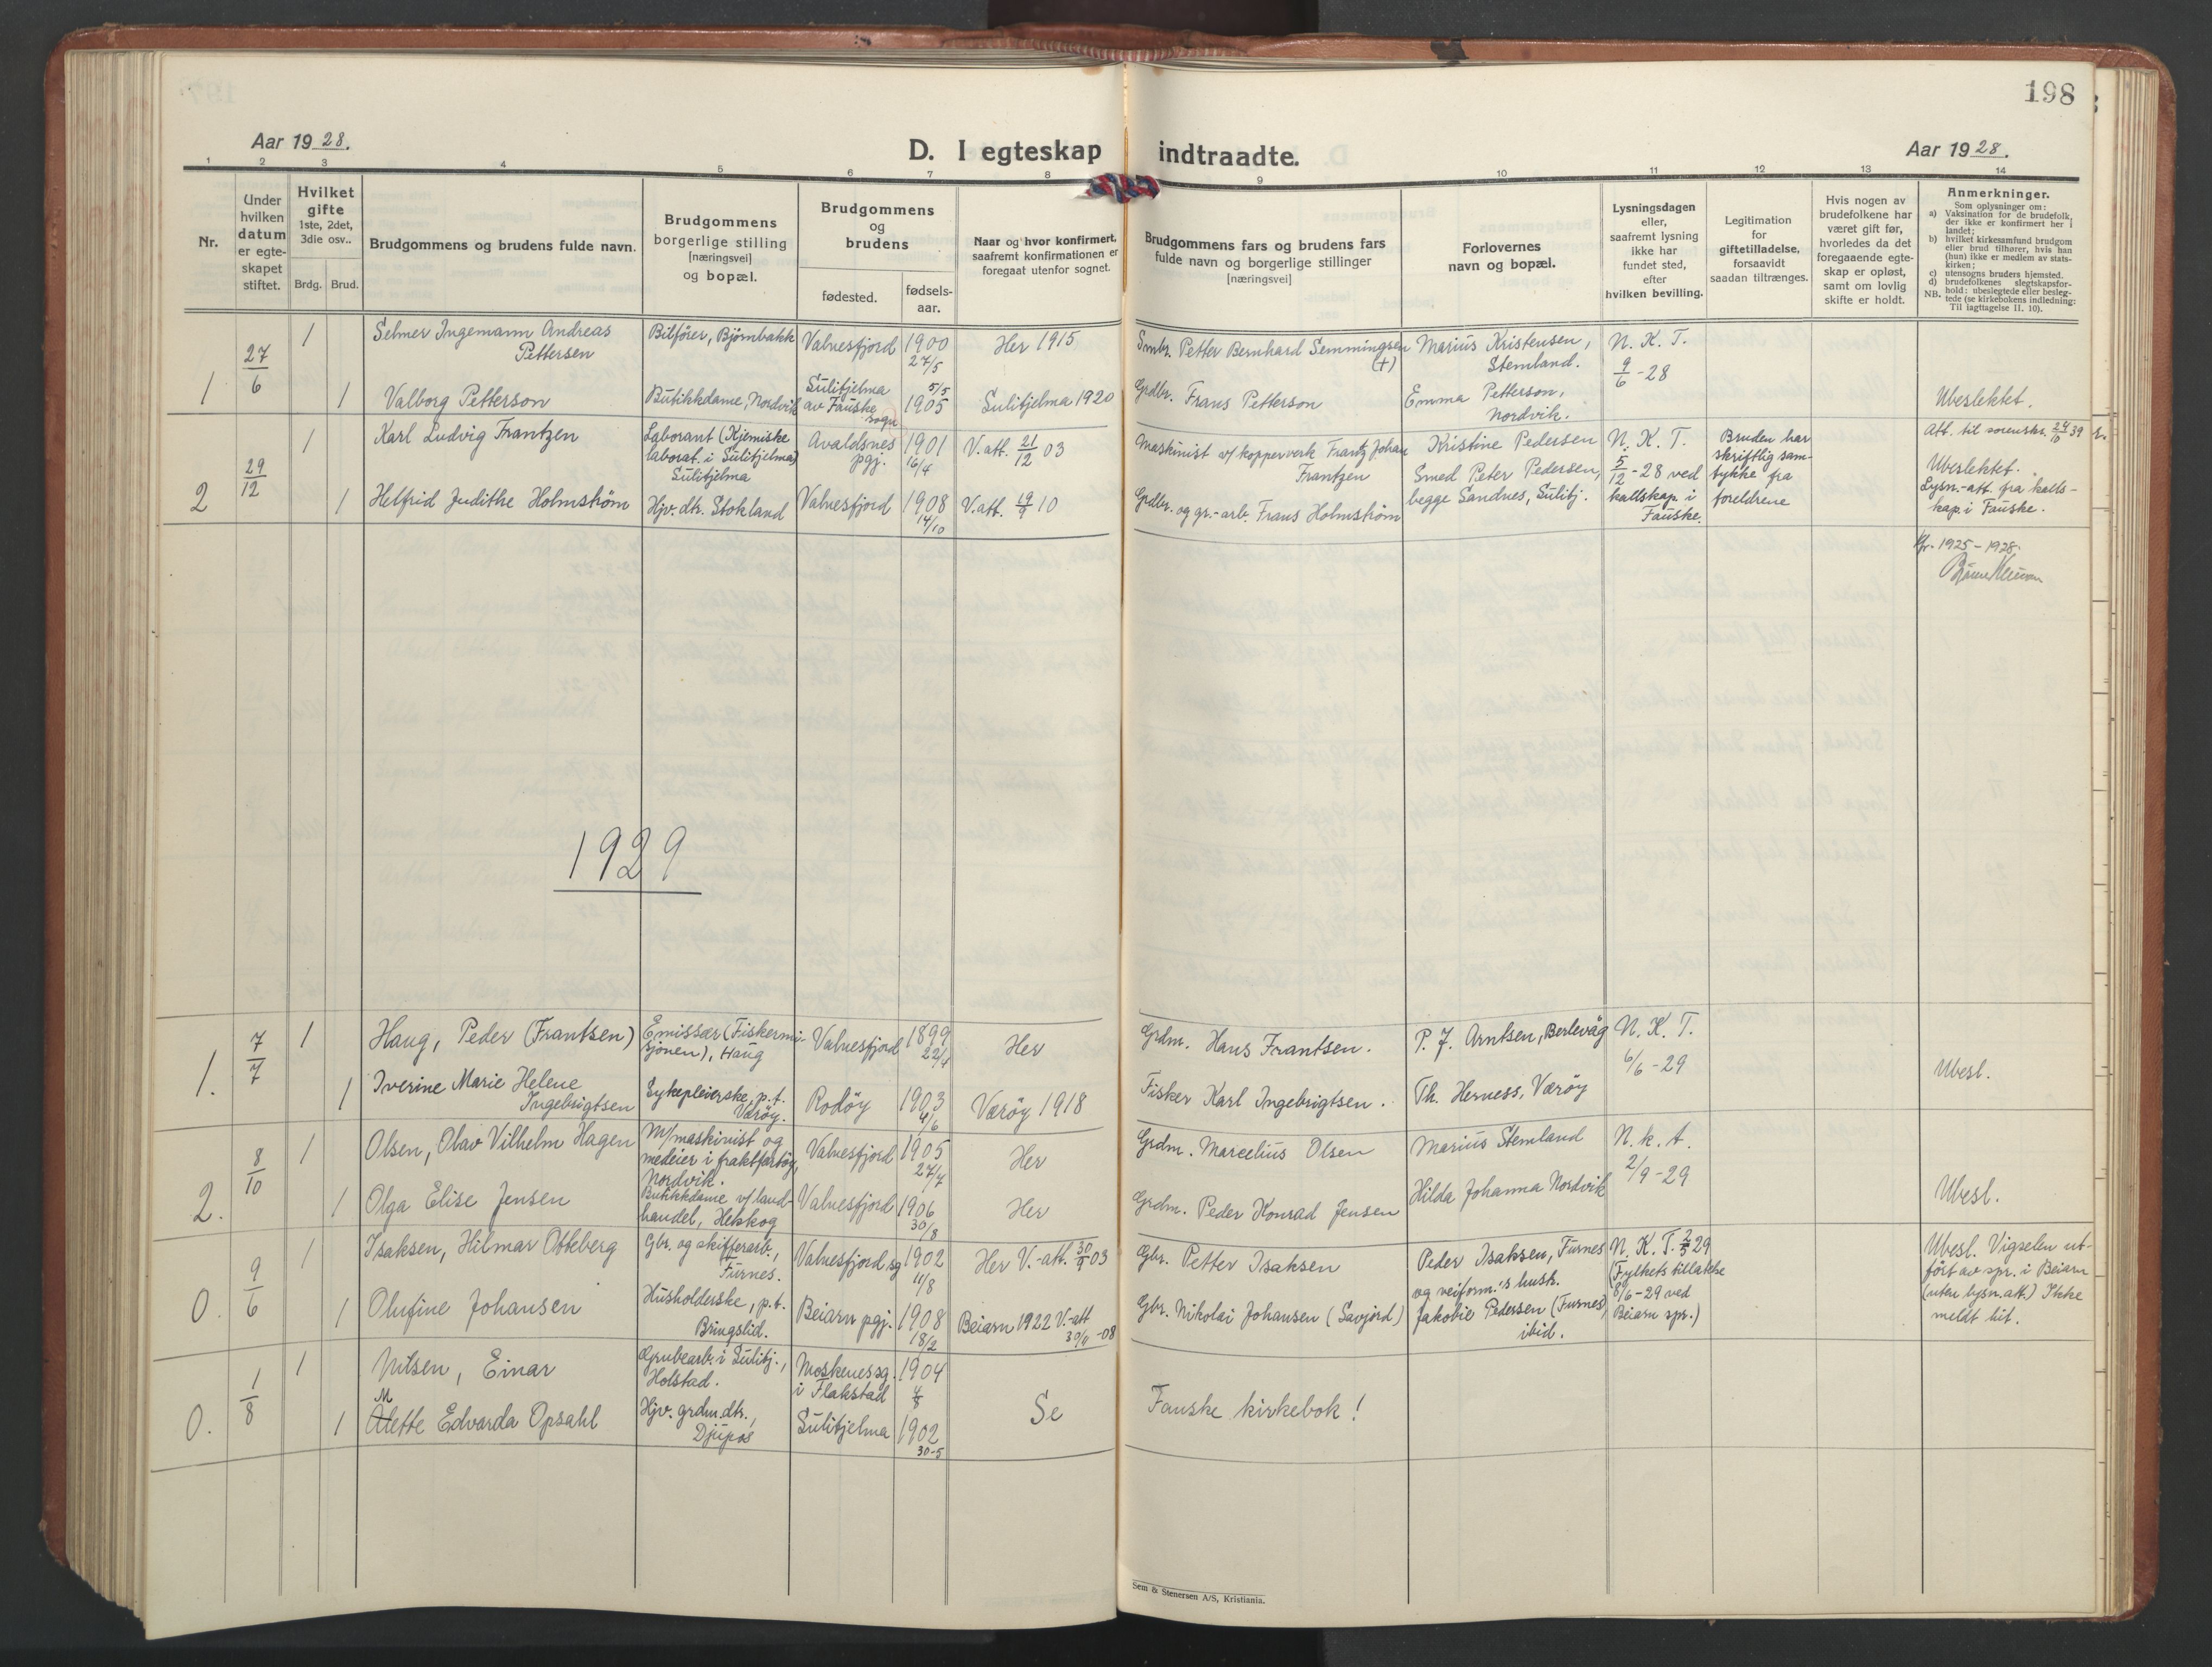 198
Aar 1928.
D. I egteskap indtraadte.
Aar 1928.
1 2 3 4 5 6 7 8 9 10 11 12 13 14
Nr.
Under hvilken datum er egte-skapet stiftet.
Hvilket gifte 1ste, 2det, 3die osv..
Brdg. Brud.
Brudgommens og brudens fulde navn.
Brudgommens borgerlige stilling [næringsvei] og bopæl.
Brudgommens og brudens
fødested. fødsels-aar.
Naar og hvor konfirmert, saafremt konfirmationen er foregaat utenfor sognet.
Brudgommens fars og brudens fars fulde navn og borgerlige stillinger [næringsvei]
Forlovernes navn og bopæl.
Lysningsdagen eller, saafremt lysning ikke har fundet sted, efter hvilken bevilling.
Legitimation for giftetilladelse, forsaavidt saadan tiltrænges.
Hvis nogen av brudefolkene har været gift før, hvorledes da det foregaaende egte-skap er opløst, samt om lovlig skifte er holdt.
Anmerkninger.
Som oplysninger om:
a) Vaksination for de brudefolk, der ikke er konfirmert her i landet;
b) hvilket kirkesamfund brudgom eller brud tilhører, hvis han (hun) ikke er medlem av stats-kirken;
c) utensogns bruders hjemsted.
d) brudefolkenes slegtskapsfor-hold: ubeslegtede eller besleg-tede (se kirkebokens indledning: Til iagttagelse II. 10).
NB.
1 27/6 1 Selmer Ingemann Andreas Pettersen
Bilfører, Bjørnbakk
Valnesfjord 1900 27/5
Her 1915
Smbr. Petter Bernhard Semmingsen (+)
Marius Kristensen, Stemland.
N. K. T. 9/6-28
1 Valborg Petterson
Butikkdame, Nordvik
Sulitjelma av Fauske sogn 5/5 1905
Sulitjelma 1920
Grdbr. Frans Petterson
Emma Petterson, Nordvik.
Ubeslektet.
2 29/12 1 Karl Ludvig Frantzen
Laborant (Kjemiske laborat. i Sulitjelma) Sulitjelma
Avaldsnes pgj. 1901 16/4
V. att. 21/12 03
Maskinist v/ kopperverk Frantz Johan Frantzen
Kristine Pedersen
Smed Peter Pedersen, begge Sandnes, Sulitj.
N. K. T. 5/12-28 ved kallskap. i Fauske.
Bruden har skriftlig sam-tykke fra foreldrene
Att. til sorenskr. 24/10 39
Ubeslektet.
Lysn.-att. fra kalls-kap. i Fauske.
1 Helfrid Judithe Holmstrøm
Hjv. dtr. Stokland
Valnesfjord 1908 14/10
V. att. 19/9 10
Grdbr. og gr.-arb. Frans Holmstrøm
Kfr. 1925-1928.
1929
1. 7/7 1 Haug, Peder (Frantsen)
Emissær (Fiskermi-sjonen), Haug
Valnesfjord 1899 22/4
Her
Grdm. Hans Frantsen.
P. J. Arntsen, Berlevåg
N. K. T. 6/6-29
1 Iverine Marie Helene Ingebrigtsen
Sykepleierske, p.t. Værøy.
Rodöy 1903 4/6
Værøy 1918
Fisker Karl Ingebrigtsen.
Th. Herness, Værøy
Ubesl.
2. 8/10 1 Olsen, Olav Vilhelm Hagen
M/maskinist og medeier i fraktfartøy, Nordvik.
Valnesfjord 1905 27/4
Her
Grdm. Marcelius Olsen
Marius Stemland
N. k. t. 2/9-29
1 Olga Elise Jensen
Butikkdame v/ land-handel, Hekkog
Valnesfjord 1906 30/8
Her
Grdm. Peder Konrad Jensen
Hilda Johanna Nordvik
Ubesl.
0. 9/6 1 Isaksen, Hilmar Otteberg
Gbr. og skifferarb., Furnes.
Valnesfjord sg 1902 11/8
Her V.-att. 30/9 03
Gbr. Petter Isaksen
Peder Isaksen, Furnes og veiform.'s husk. Jakobie Pedersen (Furnes), ibid.
N. K. T. 2/5 29 (Fylkets tillatelse 8/6-29 ved Beiarn spr.)
Ubesl. Vigselen ut-ført av spr. i Beiarn (uten lysn.att.) Ikke meldt hit.
1 Olufine Johansen
Husholderske, p.t. Bringslid.
Beiarn pgj. 1908 18/2
Beiarn 1922 V.-att 30/11-08
Gbr. Nikolai Johansen (Savjord)
0. 1/8 1 Nilsen, Einar
Grubearb. i Sulitj., Holstad.
Moskenes sg. i Flakstad 1904 4/8
1 Mette Edvarda Opsahl
Hjv. grdm. dtr., Djupos
Sulitjelma 1902 30-5
Se Fauske kirkebok!
Sem & Stenersen A/S, Kristiania.